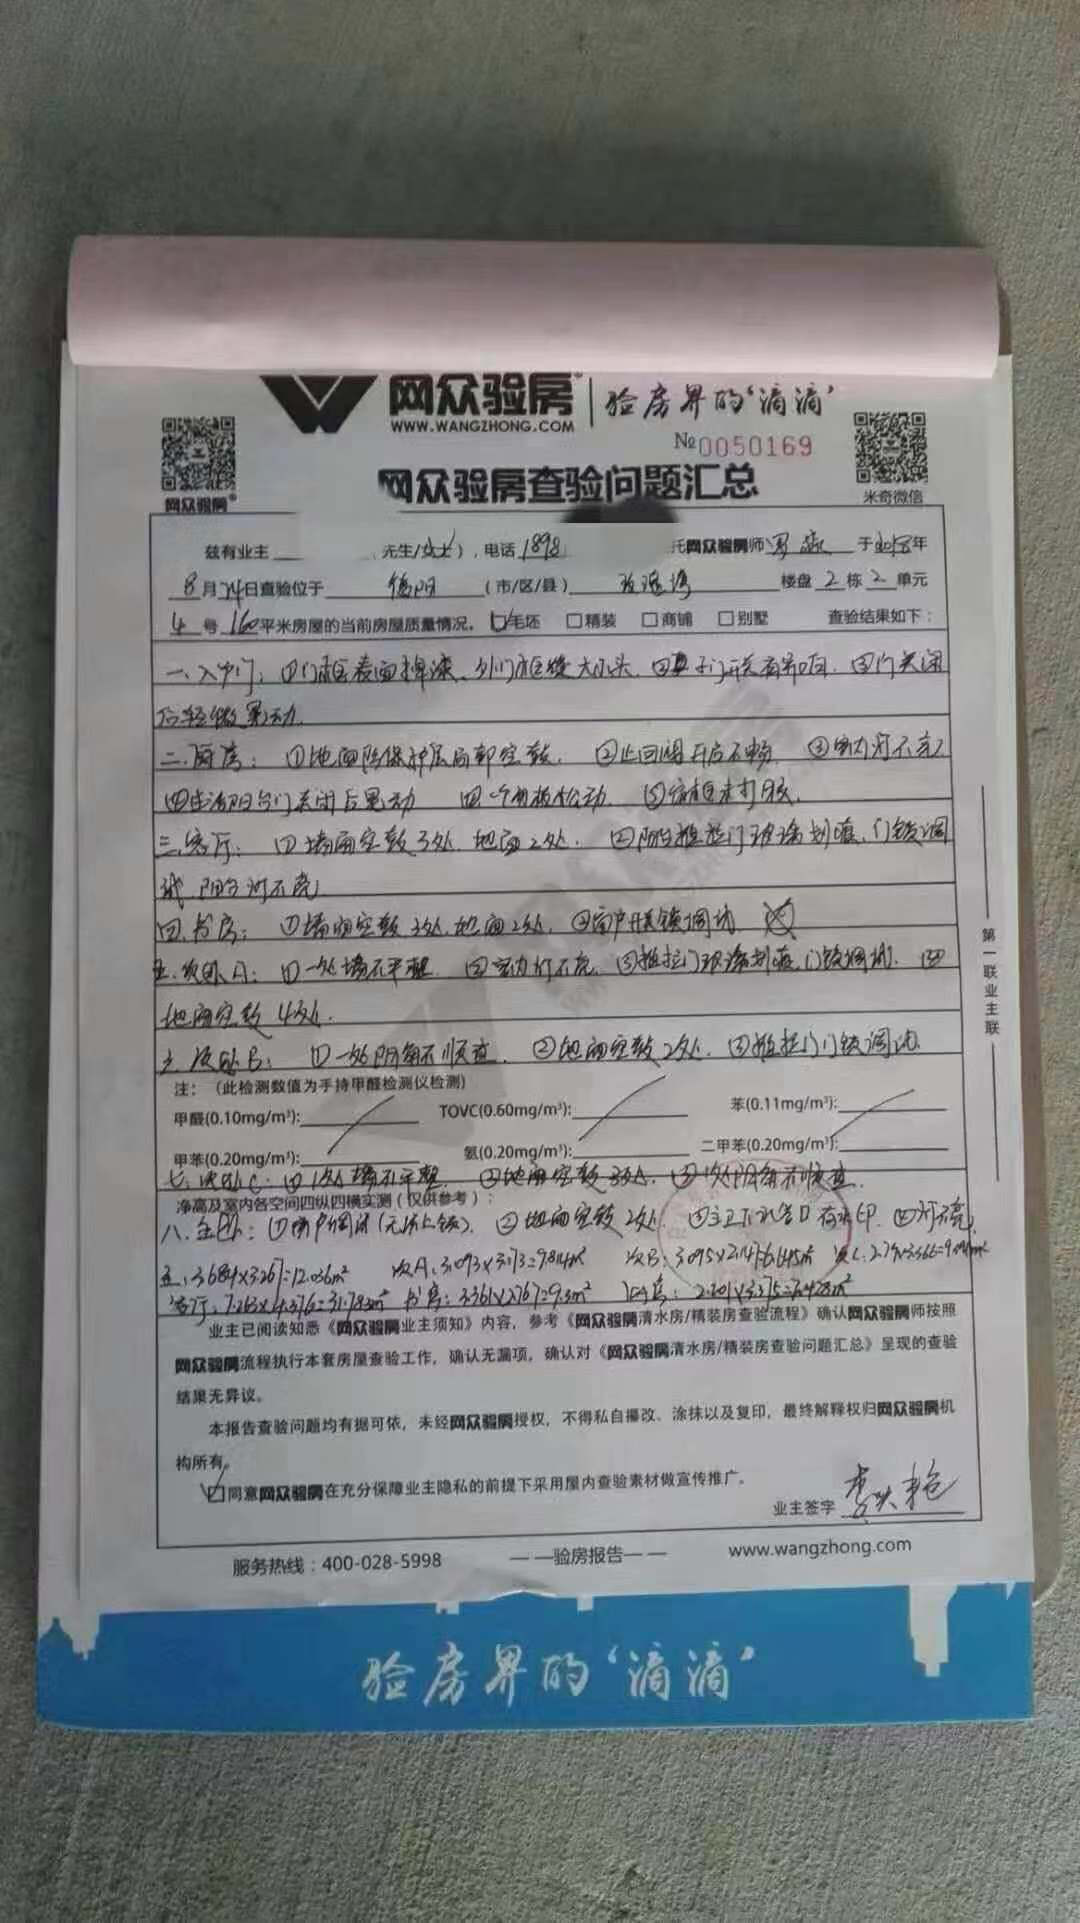 网众验房®
WWW.WANGZHONG.COM
验房界的‘滴滴’
№0050169
网众验房®
米奇微信
网众验房查验问题汇总
兹有业主 先生/女士),电话1898 托网众验房师 于2018年
8月24日查验位于 德阳 (市/区/县) 玫瑰湾 楼盘2栋2单元
4号160平米房屋的当前房屋质量情况。☑毛坯 □精装 □商铺 □别墅 查验结果如下:
一、入户门:①门框表面掉漆、外门框缝大小头. ②子门开关有异响. ③门关闭
后轻微晃动.
二.厨房:①地面防保护层局部空鼓. ②止回阀开启不畅. ③室内灯不亮
④生活阳台门关闭后晃动 ④一个面板松动. ⑤窗框未打胶.
三.客厅:①墙面空鼓3处.地面2处. ②阳台推拉门玻璃划痕、门锁调
试 阳台灯不亮
四.书房:①墙面空鼓3处.地面2处. ②窗户开关锁调试
五.次卧A:①一处墙不平整. ②室内灯不亮. ③推拉门玻璃划痕,门锁调试. ④
地面空鼓4处.
六.次卧B:①一处阴角不顺直. ②地面空鼓2处. ③推拉门门锁调试.
注:(此检测数值为手持甲醛检测仪检测)
甲醛(0.10mg/m³): TOVC(0.60mg/m³): 苯(0.11mg/m³):
甲苯(0.20mg/m³): 氨(0.20mg/m³): 二甲苯(0.20mg/m³):
七.次卧C:①1处墙不平整. ②地面空鼓3处. ③1处阴角不顺直.
净高及室内各空间四纵四横实测(仅供参考):
八.主卧:①窗户调试(无法上锁). ②地面空鼓2处. ③主卫下水管口有水印. ④灯不亮.
主:3.684×3.267=12.036m² 次A:3.093×3.173=9.814m² 次B:3.095×2.147=6.645m² 次C:
客厅:7.263×4.376=31.783m² 书房:3.361×2.767=9.3m²
业主已阅读知悉《网众验房业主须知》内容,参考《网众验房清水房/精装房查验流程》确认网众验房师按照
网众验房流程执行本套房屋查验工作,确认无漏项,确认对《网众验房清水房/精装房查验问题汇总》呈现的查验
结果无异议。
本报告查验问题均有据可依,未经网众验房授权,不得私自撂改、涂抹以及复印,最终解释权归网众验房机
构所有。
☑同意网众验房在充分保障业主隐私的前提下采用屋内查验素材做宣传推广。
业主签字
第一联业主联
服务热线:400-028-5998 ——验房报告—— www.wangzhong.com
验房界的‘滴滴’